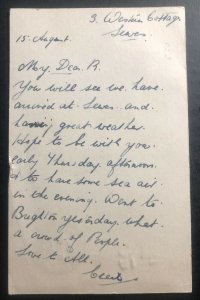 3. Weskin Cottage,
Lewes.
15. August.
My Dear R.
You will see we have
arrived at Lewes and
having great weather.
Hope to be with you
early Thursday afternoon
& to have some sea air
in the evening. Went to
Brighton yesterday. What
a crowd of People.
Love to All.